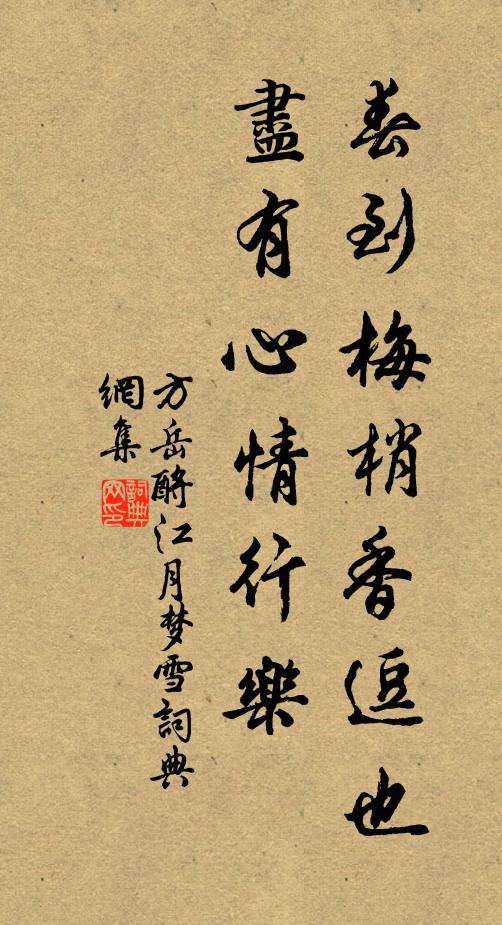 春到梅梢香逗也
盡有心情行樂
方岳酹江月梦雪詞典
網集
詞典網印